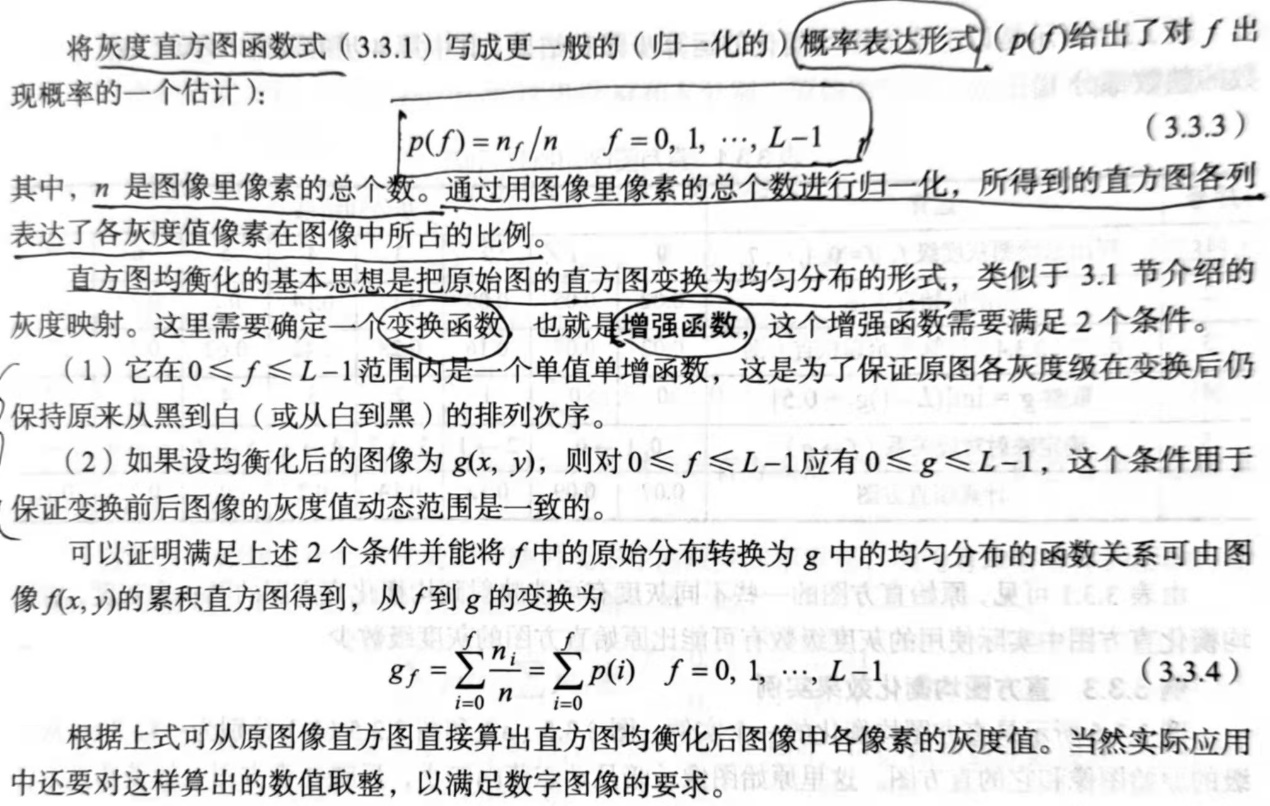 将灰度直方图函数式（3.3.1）写成更一般的（归一化的）概率表达形式（p(f)给出了对 f 出
现概率的一个估计）：
p(f) = n_f/n f = 0, 1, ⋯, L−1 （3.3.3）
其中，n 是图像里像素的总个数。通过用图像里像素的总个数进行归一化，所得到的直方图各列
表达了各灰度值像素在图像中所占的比例。
直方图均衡化的基本思想是把原始图的直方图变换为均匀分布的形式，类似于 3.1 节介绍的
灰度映射。这里需要确定一个变换函数，也就是增强函数，这个增强函数需要满足 2 个条件。
（1）它在0≤ f ≤ L−1范围内是一个单值单增函数，这是为了保证原图各灰度级在变换后仍
保持原来从黑到白（或从白到黑）的排列次序。
（2）如果设均衡化后的图像为 g(x, y)，则对 0≤ f ≤ L−1应有 0≤ g ≤ L−1，这个条件用于
保证变换前后图像的灰度值动态范围是一致的。
可以证明满足上述 2 个条件并能将 f 中的原始分布转换为 g 中的均匀分布的函数关系可由图
像 f(x, y)的累积直方图得到，从 f 到 g 的变换为
g_f = ∑_{i=0}^{f} n_i/n = ∑_{i=0}^{f} p(i) f = 0, 1, ⋯, L−1 （3.3.4）
根据上式可从原图像直方图直接算出直方图均衡化后图像中各像素的灰度值。当然实际应用
中还要对这样算出的数值取整，以满足数字图像的要求。